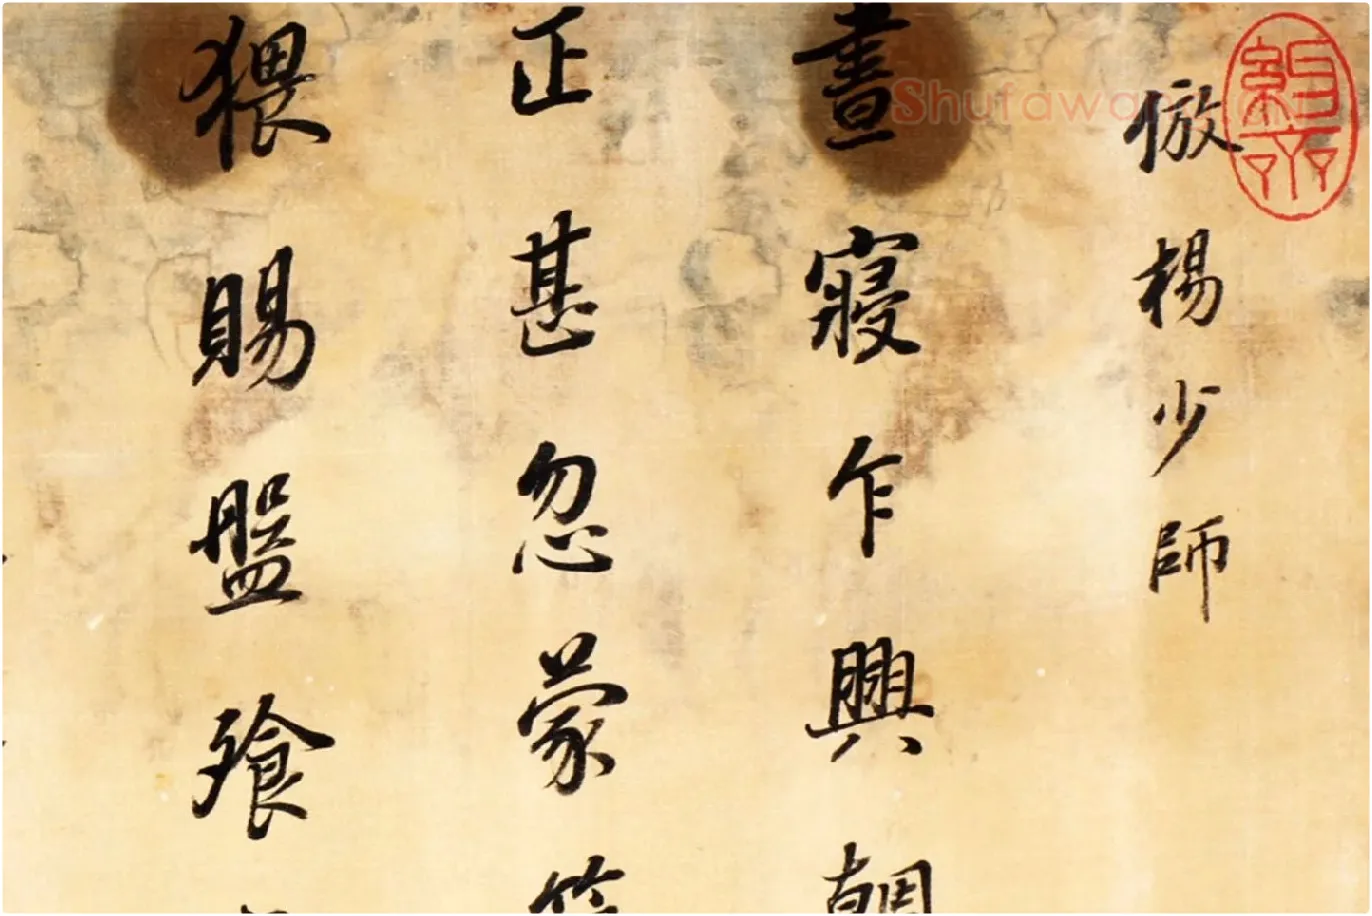 倣楊少師
晝寢乍興朝
正甚忽蒙簡
猥賜盤飧
Shufawa